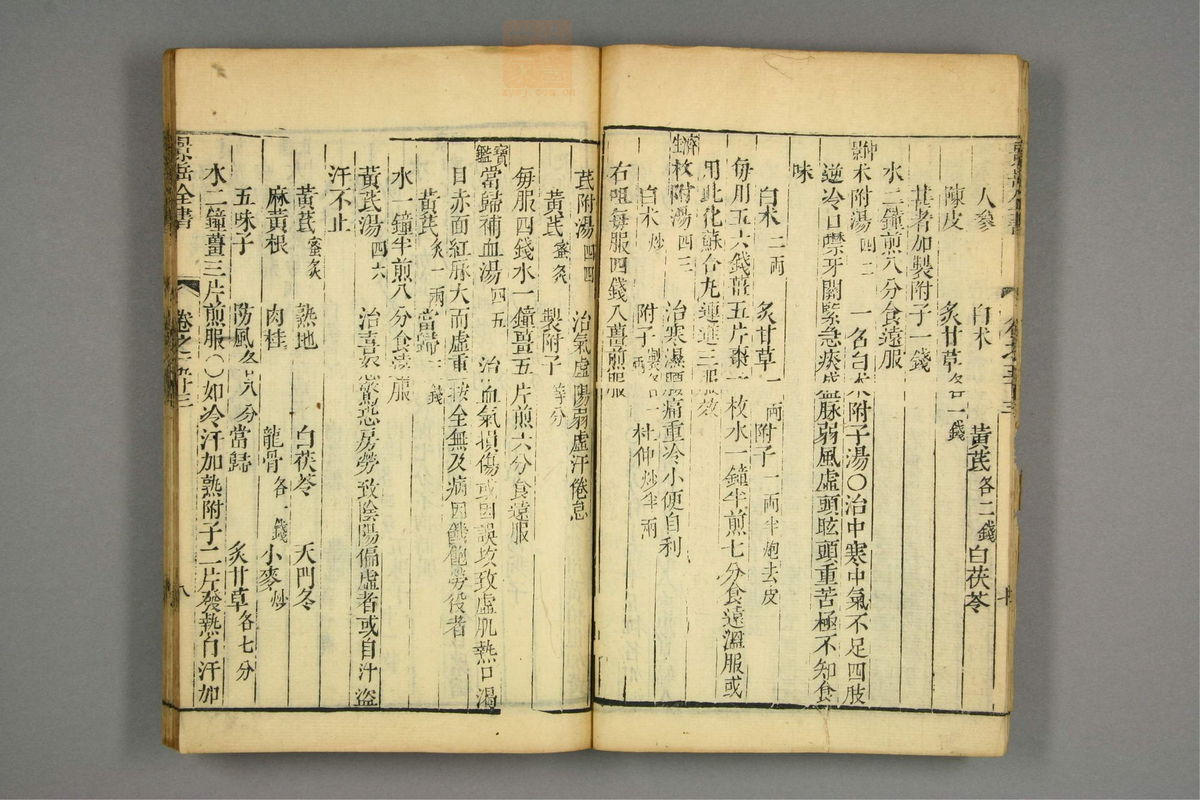 人參 白术 黃芪各二錢 白茯苓
陳皮 炙甘草各一錢
甚者加製附子一錢
水二鐘煎八分食遠服
仲景术附湯四二 一名白术附子湯〇治中寒中氣不足四肢
逆冷口噤牙關緊急痰盛無脉弱風虛頭眩頭重苦極不知食
味
白术二兩 炙甘草一兩 附子一兩半炮去皮
每用五六錢薑五片棗一枚水一鐘半煎七分食遠溫服或
用此化蘇合丸連進三服效
濟生朮附湯四三 治寒濕腰痛重冷小便自利
白术炒 附子製各一兩 杜仲炒半兩
右咀每服四錢入薑煎服
芪附湯四四 治氣虛陽弱虛汗倦怠
黃芪蜜炙 製附子等分
每服四錢水一鐘薑五片煎六分食遠服
寶鑑當歸補血湯四五 治血氣損傷或因誤攻致虛肌熱口渴
目赤面紅脉大而虛重按全無及病因饑飽勞役者
黃芪炙一兩 當歸二錢
水一鐘半煎八分食遠服
黃芪湯四六 治喜怒驚恐房勞致陰陽偏虛者或自汗盜
汗不止
黃芪蜜炙 熟地 白茯苓 天門冬
麻黃根 肉桂 龍骨各一錢 小麥炒
五味子 防風各八分 當歸 炙甘草各七分
水二鐘薑三片煎服〇如冷汗加熟附子二片發熱自汗加
景岳全書 卷之五十三 八